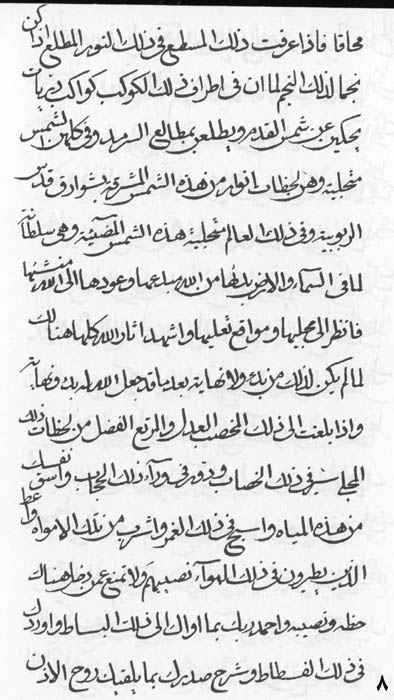 محاقا فاذا عرفت ذلك المسطع في ذلك النور المطلع اذا كن
نجما لذلك النجم لما ان في اطراف ذلك الكوكب كواكب دريات
يحكين عن شمس القدم ويطلعن بمطالع السرمد وفي كلهن الشمس
متجلية وهن لحظات انوار من هذه الشمس المشرقة بشوارق قدس
الربوبية وفي ذلك العالم متجلية هذه الشمس المضيئة وهي سلطانة
لما في السماء والارض من الله وعودها الى الله منشئها
فانظر الى مجليها ومواقع تعليها واشهد اثار الله كلها هنالك
لما لم يكن لذلك من بدء ولا نهاية بعد ما قد جعل الله
واذا بلغت الى ذلك المخصب العدل والمرتع الفضل من لحظات ذلك
المجلي سر في ذلك الخصاب وذق في وراء ذلك الحجاب واسق نفسك
من هذه المياه واسبح في ذلك الغمر واشرب من تلك الامواه واعط
الذين يطيرون في ذلك الهواء نصيبهم ولا تمنع عمن دخل هناك
حظه ونصيبه واحمد ربك بما اواك الى ذلك البساط واوردك
في ذلك الفسطاط وشرح صدرك بما يلقيك روح الاذن
٨